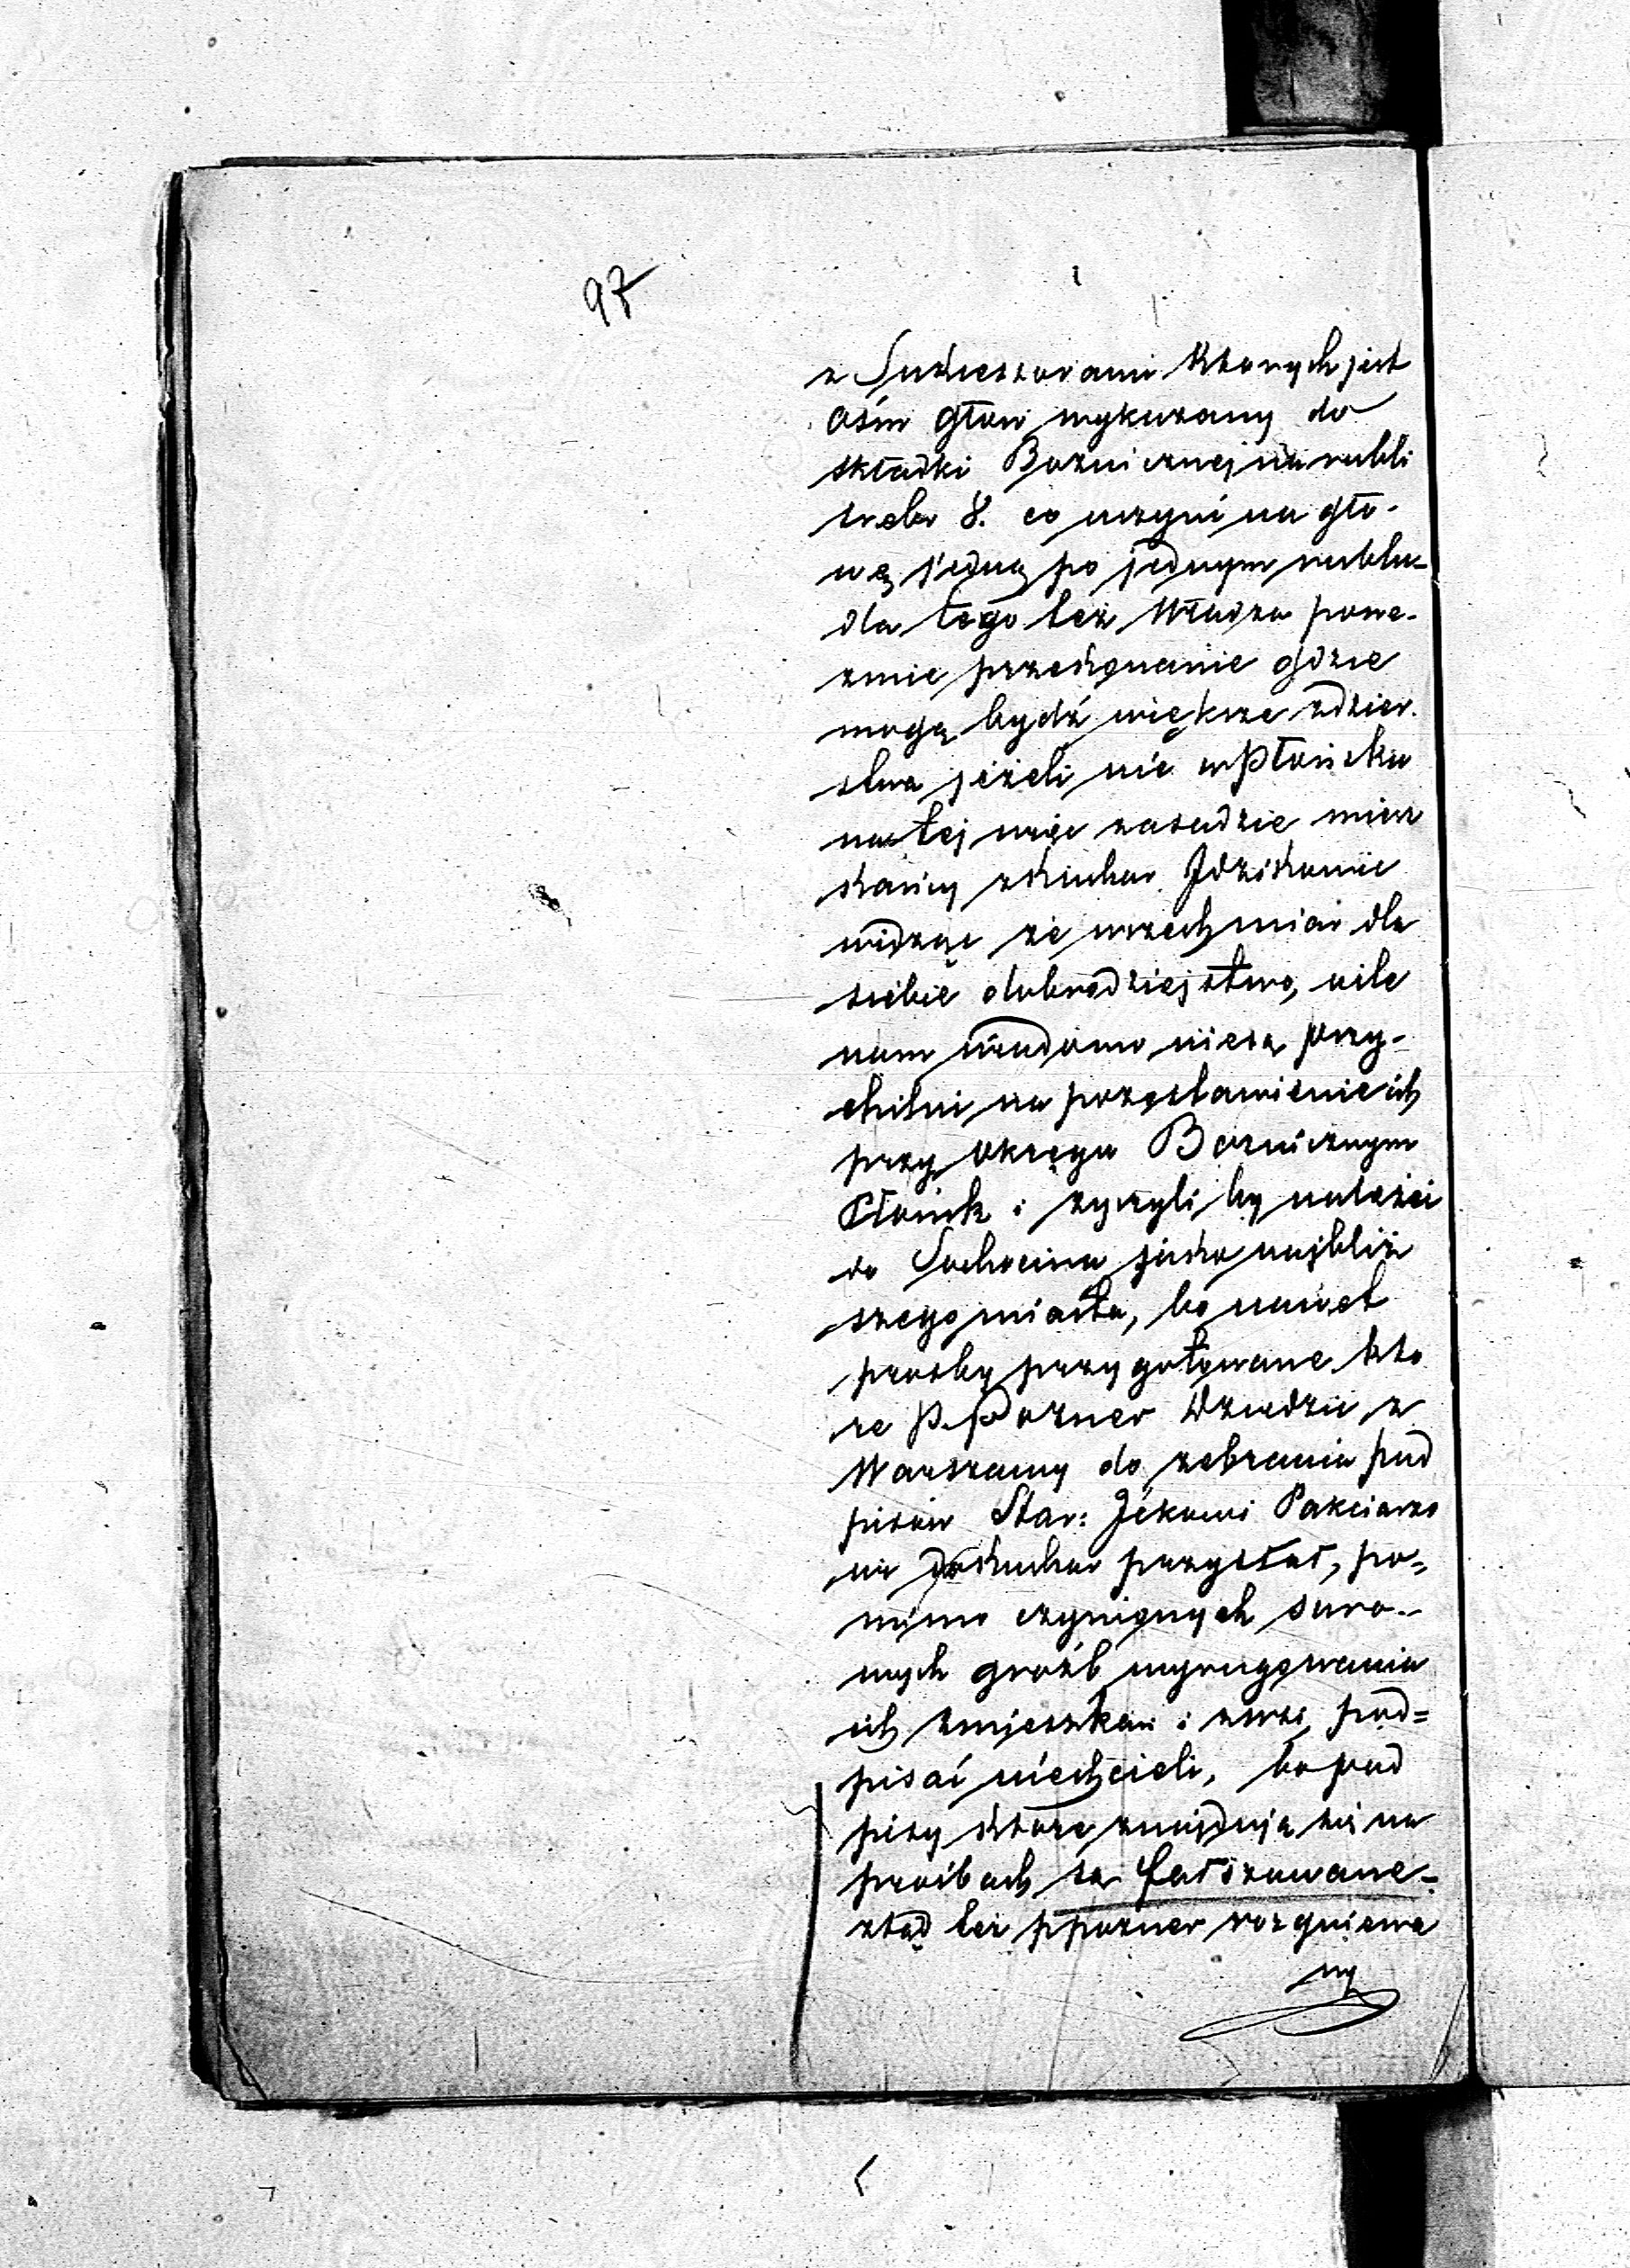 97
z Sukcessorami ktorych jest
ośm głow wykazany do
składki Boznicznej na rubli
sreb 8. co uczyni na gło-
wę jedną po jednym rublu-
dla tego też Władza powe-
zmie przekonanie gdzie
mogą bydź większe zdzier
stwa jeżeli nie w Płońsku
na tej więc zasadzie miesz
kańcy z Kuchar Jdzikowie
widząc ze wszech miar dla
siebie dobrodziejstwo, o ile
nam wiadomo niesą przy-
chilni na pozostawienie ich
przy okręgu Boznicznym
Płońsk i życzyli by należeć
do Sochocina jako najbliż
szego miasta, bo nawet
prozby przygotowane kto
re P. Pozner Dziedzic z
Warszawy do zebrania pod
pisów Star: Jckowi Pakciarzo
wi do Kuchar przysłał, po-
mimo czynionych suro-
wych groźb wyrugowania
ich zmieszkań i zwsi, pod=
pisać niechcieli, bo pod
pisy które znajdują się na
prośbach są fałszowane-
ztąd też p pozner rozgniewa
ny